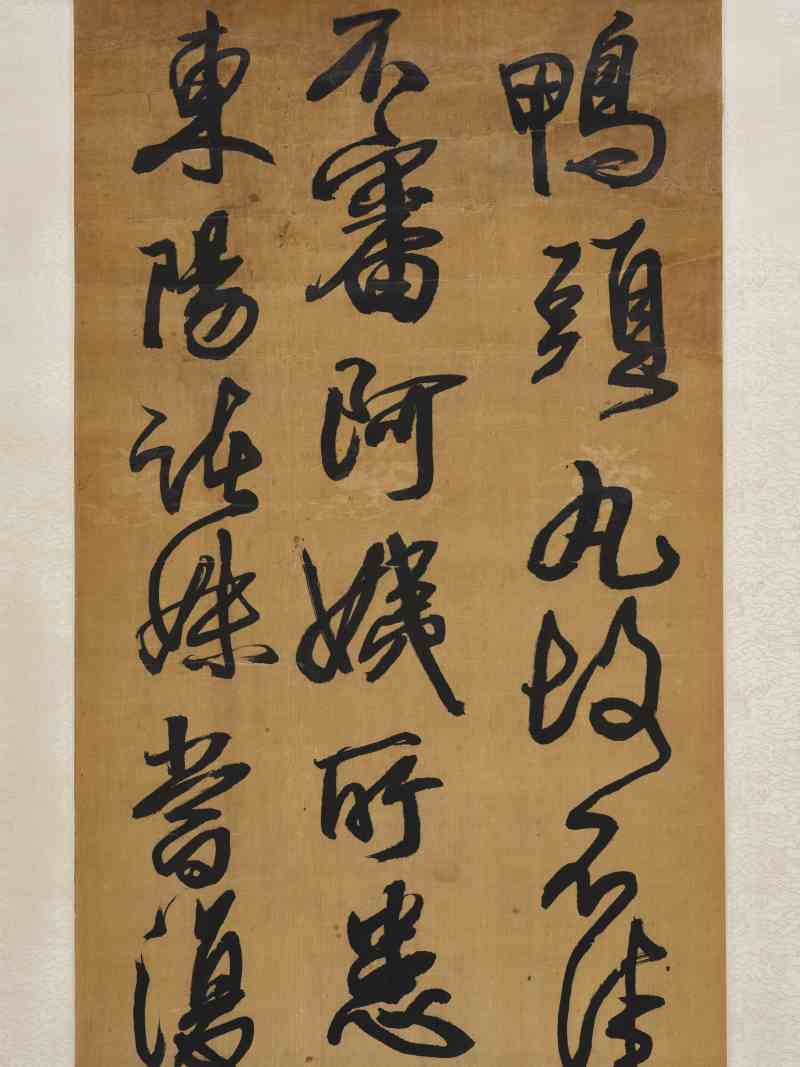 鴨頭丸故不佳
不審阿姨所患
東陽諸妹當復